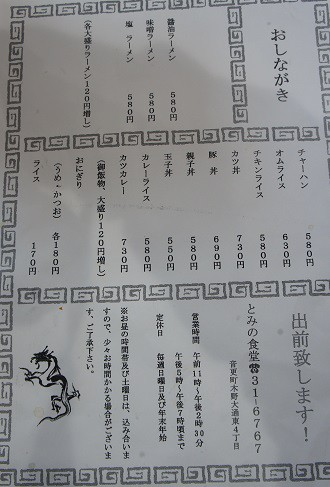 おしながき
醤油ラーメン 580円
味噌ラーメン 580円
塩 ラーメン 580円
(各大盛りラーメン120円増し)
チャーハン 580円
オムライス 630円
チキンライス 580円
カツ丼 730円
豚丼 690円
親子丼 580円
玉子丼 550円
カレーライス 580円
カツカレー 730円
(御飯物、大盛り120円増し)
おにぎり
(うめ・かつお) 各180円
ライス 170円
出前致します!
とみの食堂☎31-6767
音更町木野大通東4丁目
営業時間 午前11時~午後2時30分
午後5時~午後7時頃まで
定休日 毎週日曜日及び年末年始
※お昼の時間帯及び土曜日は、込み合いま
すので、少々お時間かかる場合がございま
す、ご了承下さい。